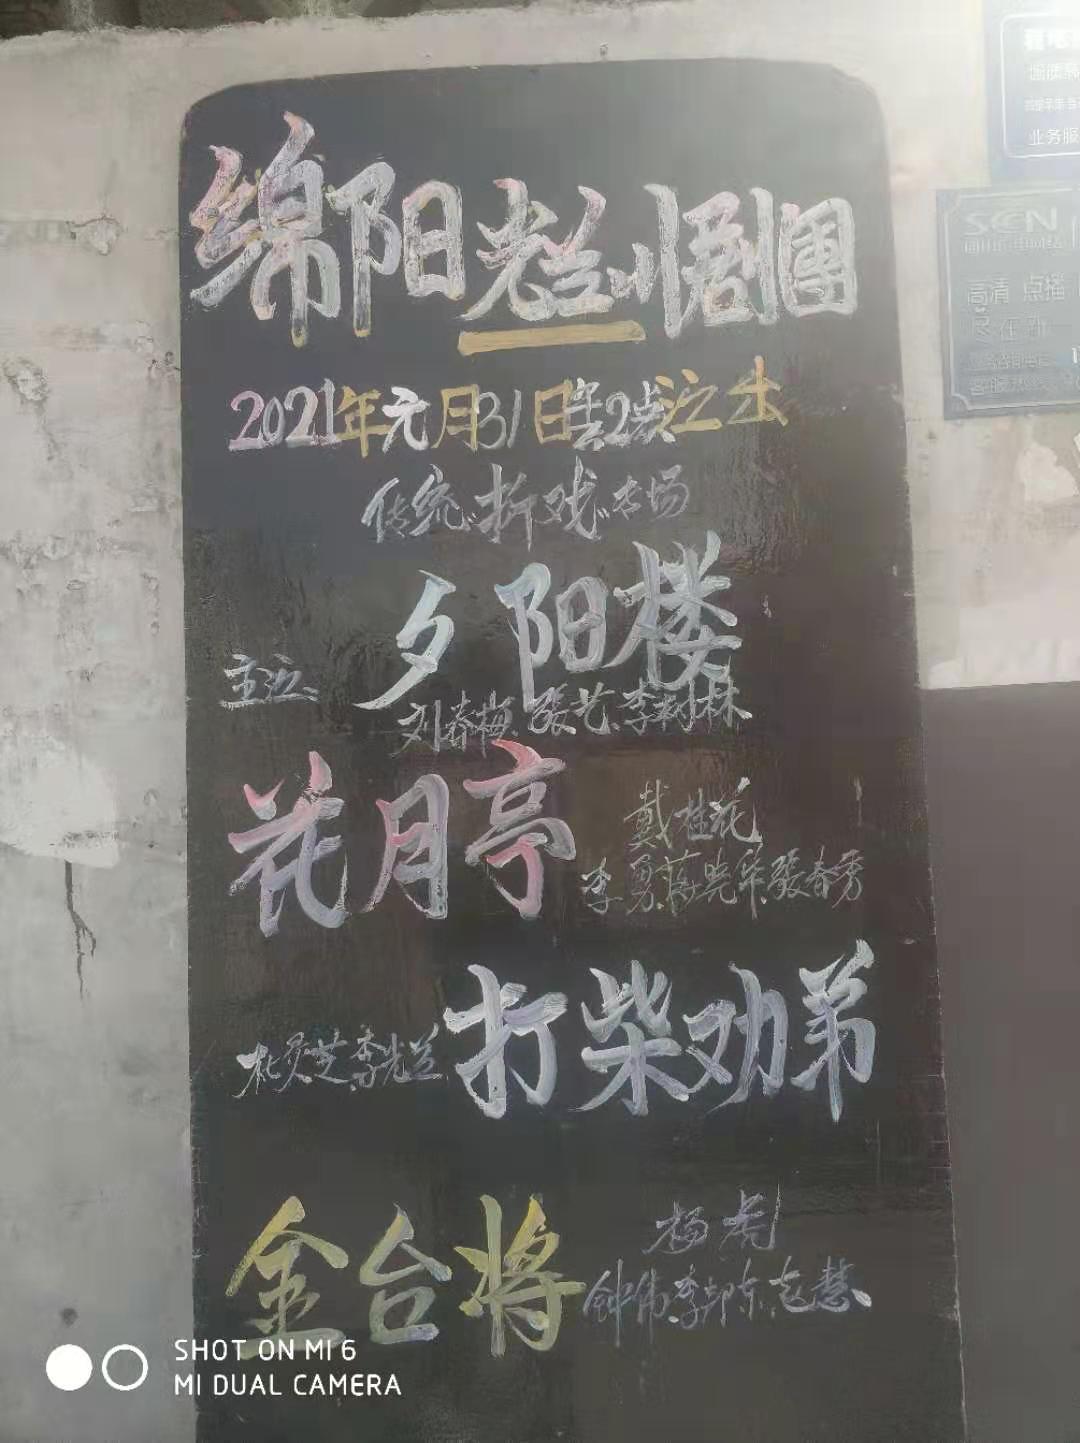 绵阳光兰川剧團
2021年元月31日午后2点演出
传统"折戏"专场
夕阳楼
主演、
刘春梅、張艺、李树林
花月亭
戴桂花
李勇、蒋晓华、張春秀
打柴劝弟
杜灵芝、李光兰
金台将
杨虎
钟伟、李邦东、袁慧
SCN
高清 点播
业务服
SHOT ON MI 6
MI DUAL CAMERA